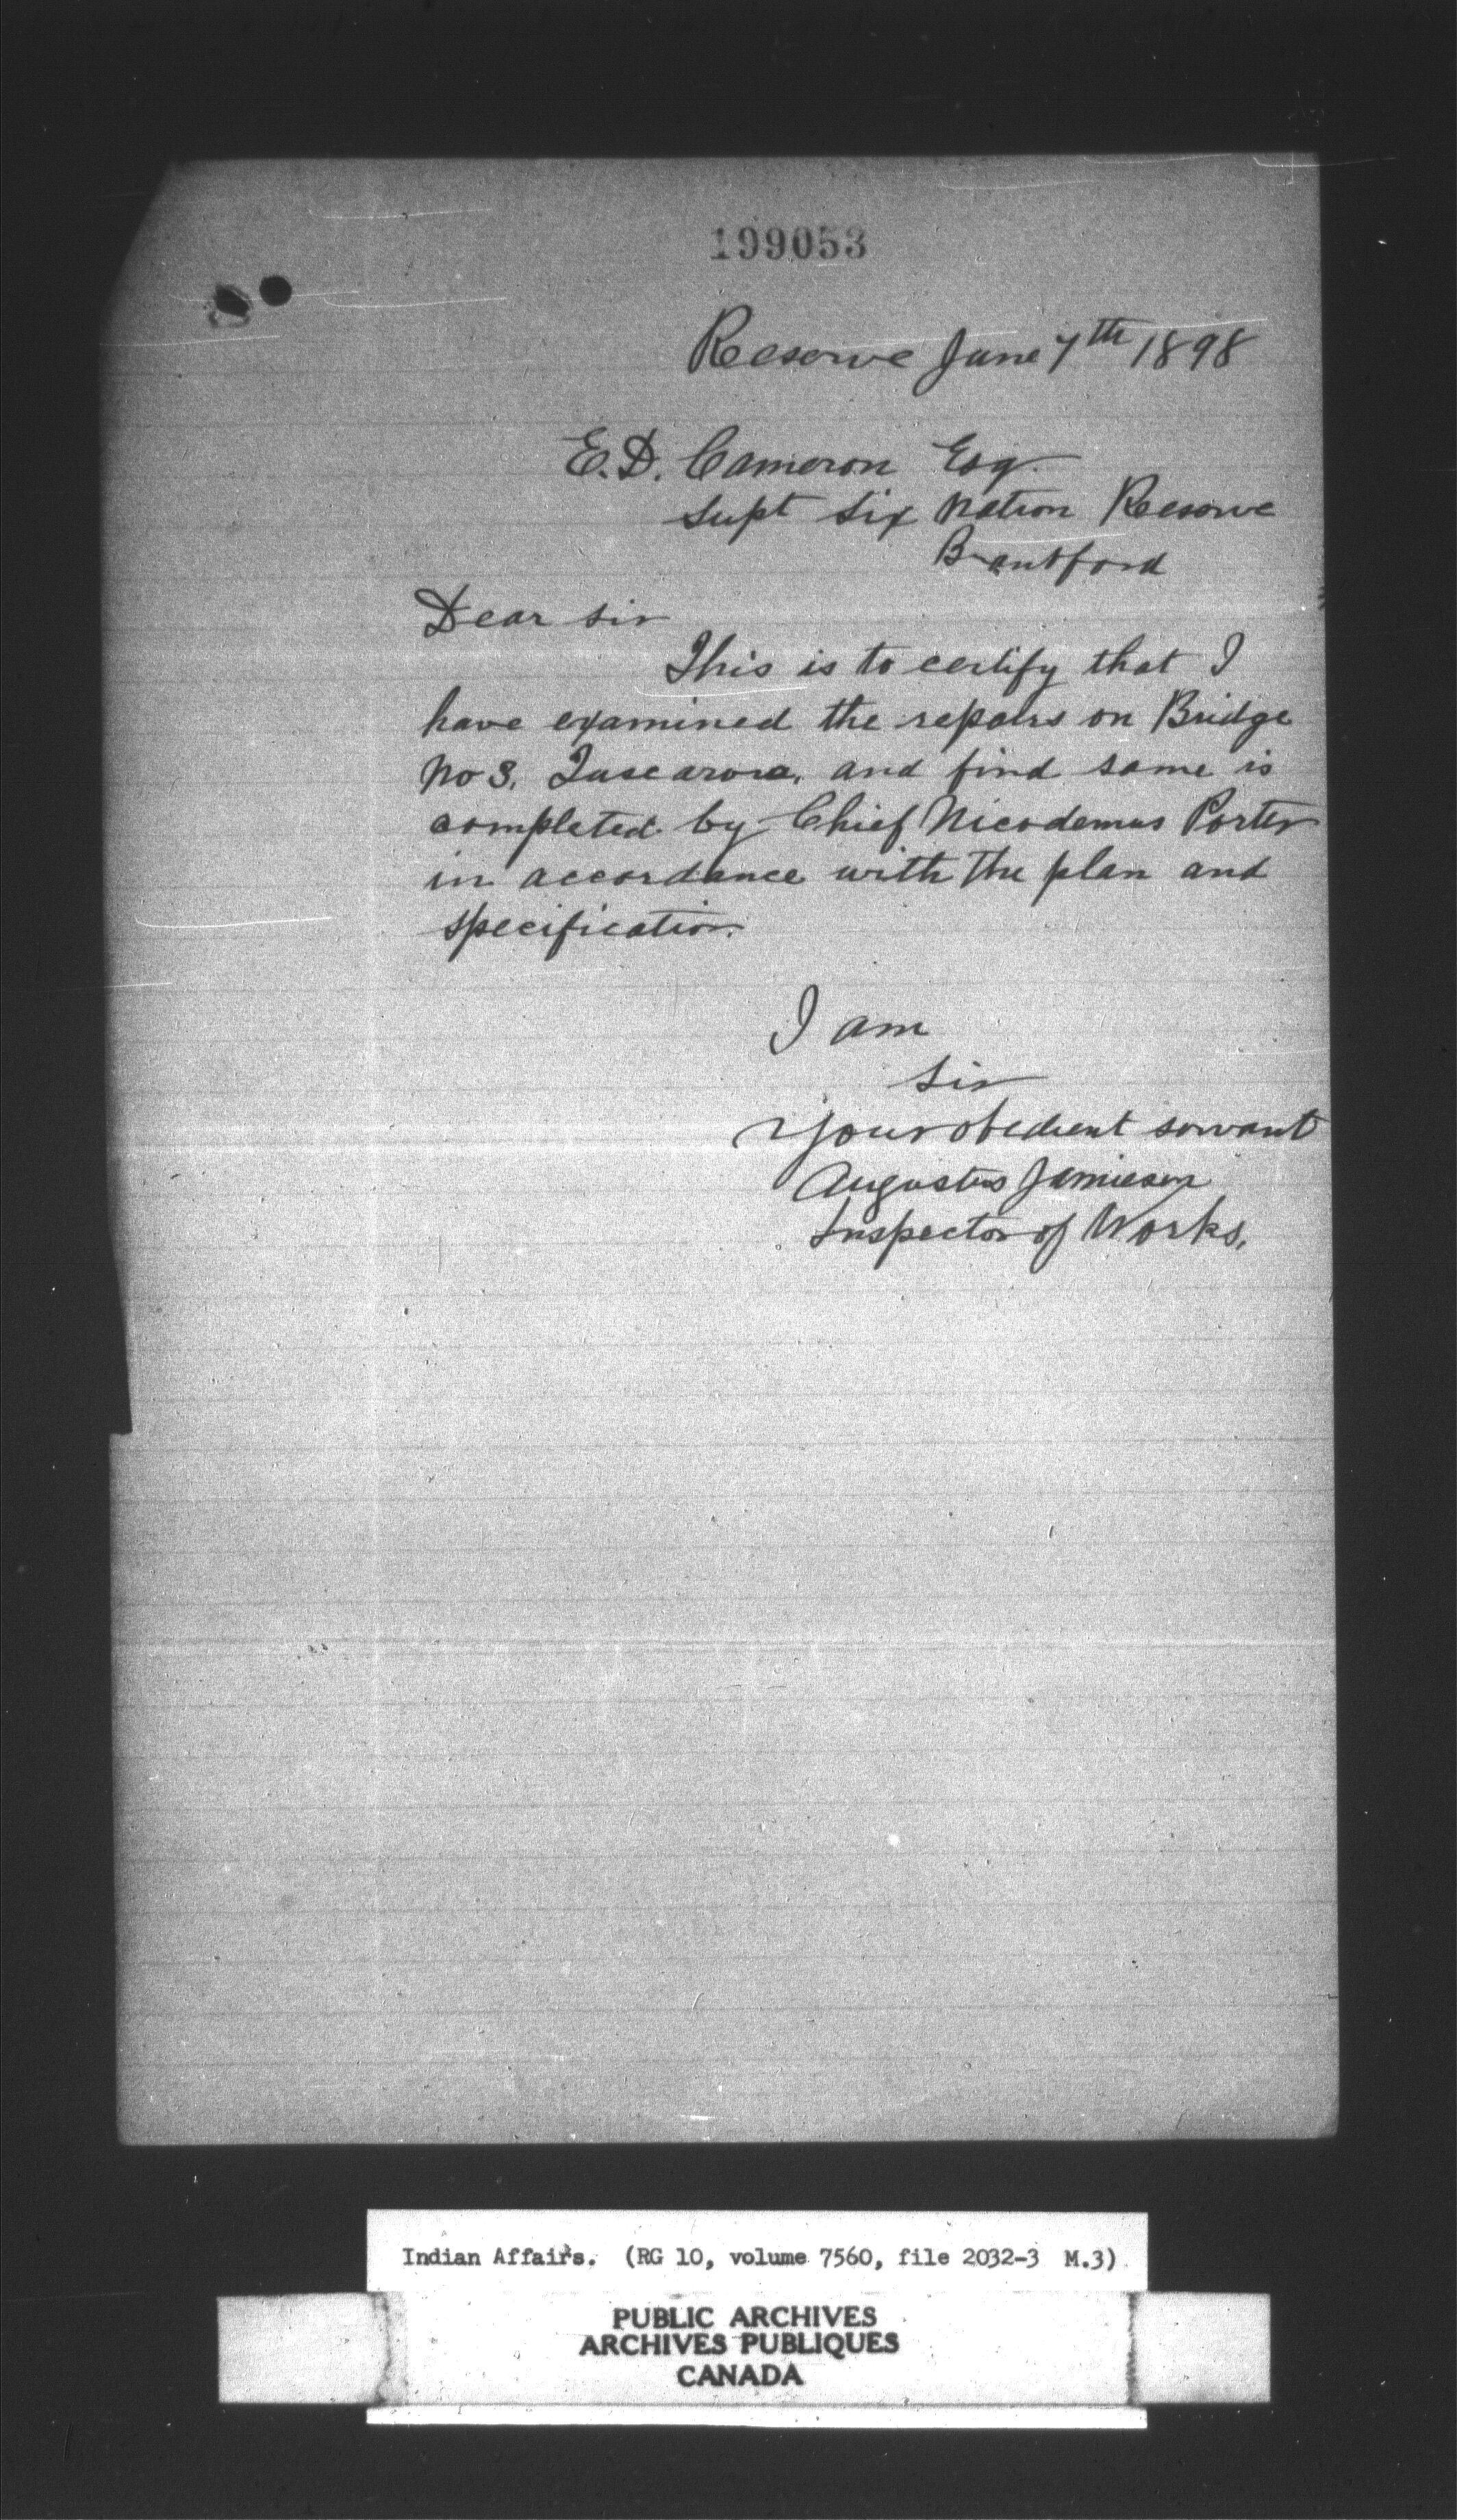 199053
Reserve June 7th 1898
E.D. Cameron Esq.
Supt Six Nation Reserve
Brantford
Dear Sir
This is to certify that I
have examined the repairs on Bridge
No 3, Tuscarora, and find same is
completed by Chief Nicodemus Porter
in accordance with the plan and
specification.
I am
Sir
Your obedient servant
Augustus Jamieson
Inspector of Works.
Indian Affairs. (RG 10, volume 7560, file 2032-3 M.3)
PUBLIC ARCHIVES
ARCHIVES PUBLIQUES
CANADA